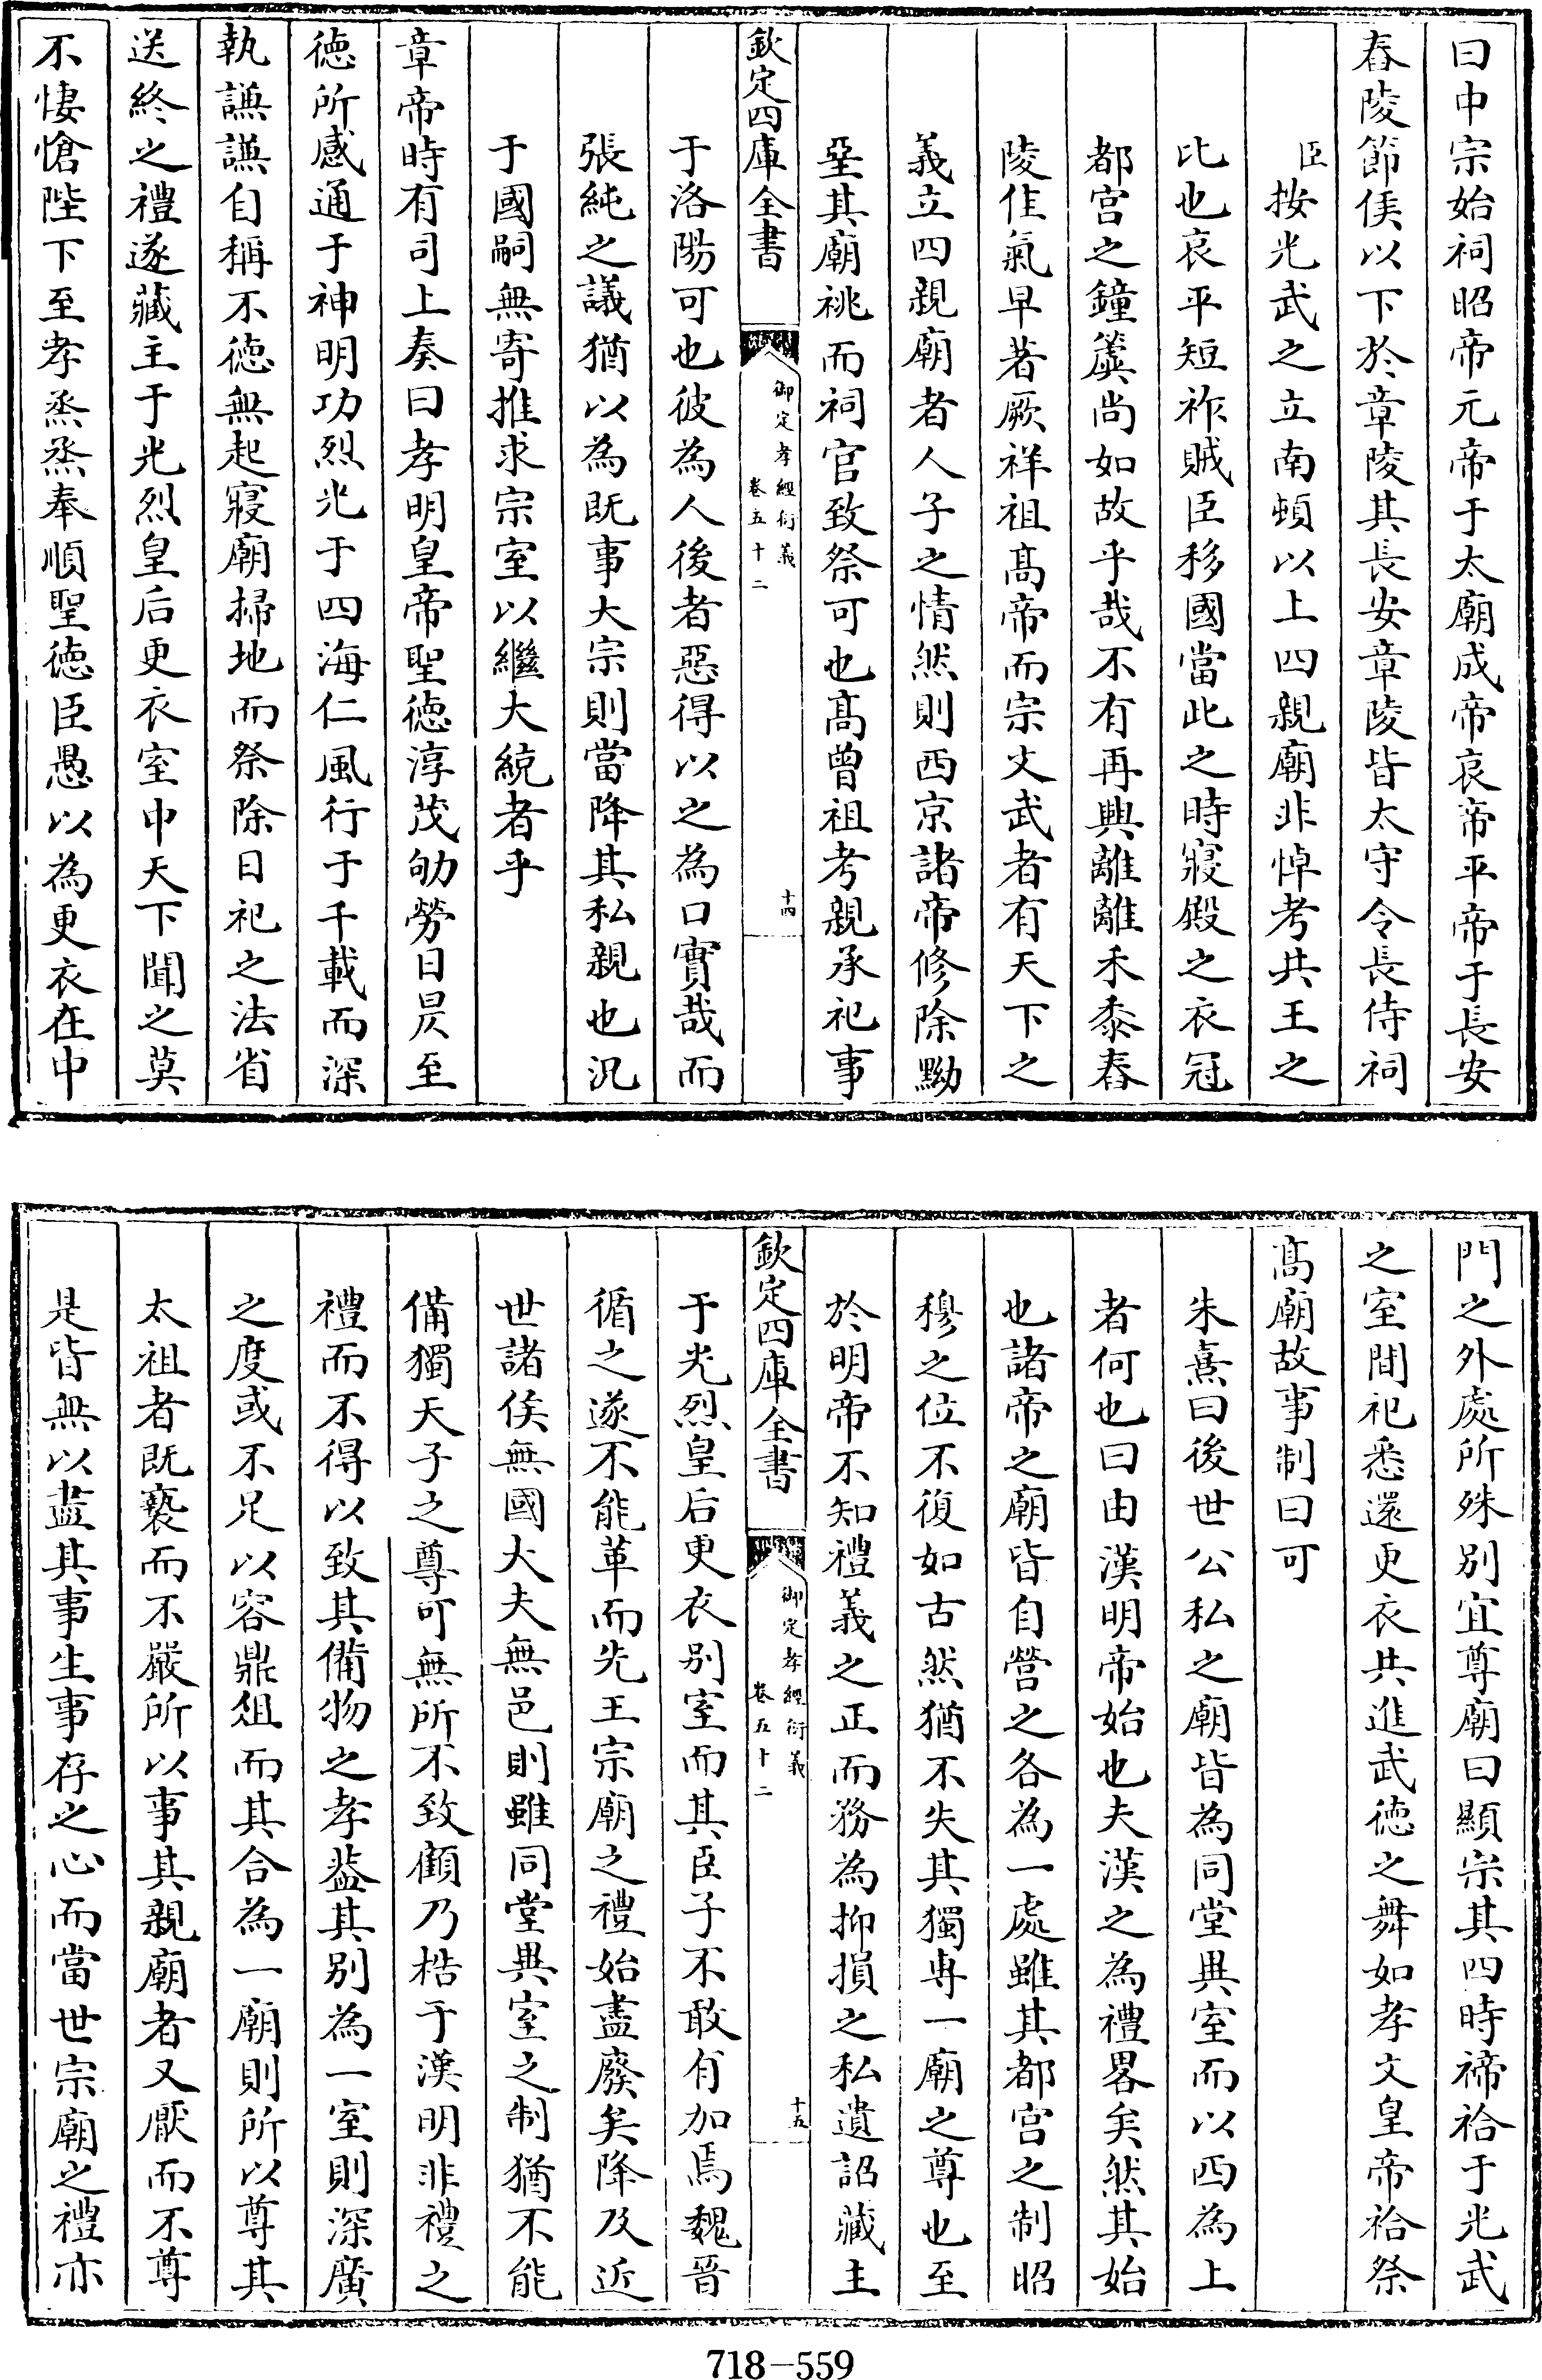 曰中宗始祠昭帝元帝于太廟成帝哀帝平帝于長安
舂陵節侯以下於章陵其長安章陵皆太守令長侍祠
臣按光武之立南頓以上四親廟非悼考共王之
比也哀平短祚賊臣移國當此之時寢殿之衣冠
都宫之鐘簴尚如故乎哉不有再興離離禾黍舂
陵佳氣早著厥祥祖髙帝而宗文武者有天下之
義立四親廟者人子之情然則西京諸帝修除黝
堊其廟祧而祠官致祭可也髙曾祖考親承祀事
欽定四庫全書
御定孝經衍義
卷五十二
十四
于洛陽可也彼為人後者惡得以之為口實哉而
張純之議猶以為既事大宗則當降其私親也況
于國嗣無寄推求宗室以繼大統者乎
章帝時有司上奏曰孝明皇帝聖徳淳茂劬勞日昃至
徳所感通于神明功烈光于四海仁風行于千載而深
執謙謙自稱不徳無起寢廟掃地而祭除日祀之法省
送終之禮遂藏主于光烈皇后更衣室中天下聞之莫
不悽愴陛下至孝烝烝奉順聖徳臣愚以為更衣在中
門之外處所殊别宜尊廟曰顯宗其四時禘祫于光武
之室間祀悉還更衣共進武徳之舞如孝文皇帝祫祭
髙廟故事制曰可
朱熹曰後世公私之廟皆為同堂異室而以西為上
者何也曰由漢明帝始也夫漢之為禮畧矣然其始
也諸帝之廟皆自營之各為一處雖其都宫之制昭
穆之位不復如古然猶不失其獨専一廟之尊也至
於明帝不知禮義之正而務為抑損之私遺詔藏主
欽定四庫全書
御定孝經衍義
卷五十二
十五
于光烈皇后更衣别室而其臣子不敢有加焉魏晉
循之遂不能革而先王宗廟之禮始盡廢矣降及近
世諸侯無國大夫無邑則雖同堂異室之制猶不能
備獨天子之尊可無所不致顧乃梏于漢明非禮之
禮而不得以致其備物之孝葢其别為一室則深廣
之度或不足以容鼎俎而其合為一廟則所以尊其
太祖者既䙝而不嚴所以事其親廟者又厭而不尊
是皆無以盡其事生事存之心而當世宗廟之禮亦
718-559